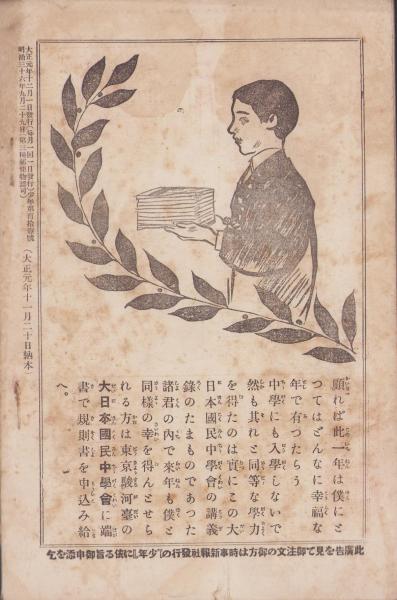 顧れば此一年は僕にと
つてはどんなに幸福な
年で有つたらう
中學にも入學しないで
然も其れと同等な學力
を得たのは實にこの大
日本國民中學會の講義
錄のたまものであつた
諸君の內で來年も僕と
同樣の幸を得んとせら
れる方は東京駿河臺の
大日本國民中學會に端
書で規則書を申込み給
へ。
此廣告を見て御注文の御方は時事新報社發行の『少年』に依る旨御申添を乞ふ
大正元年十二月一日發行(每月一回一日發行)少年第百拾壹號
明治三十六年九月二十九日第三種郵便物認可
(大正元年十一月二十日納本)